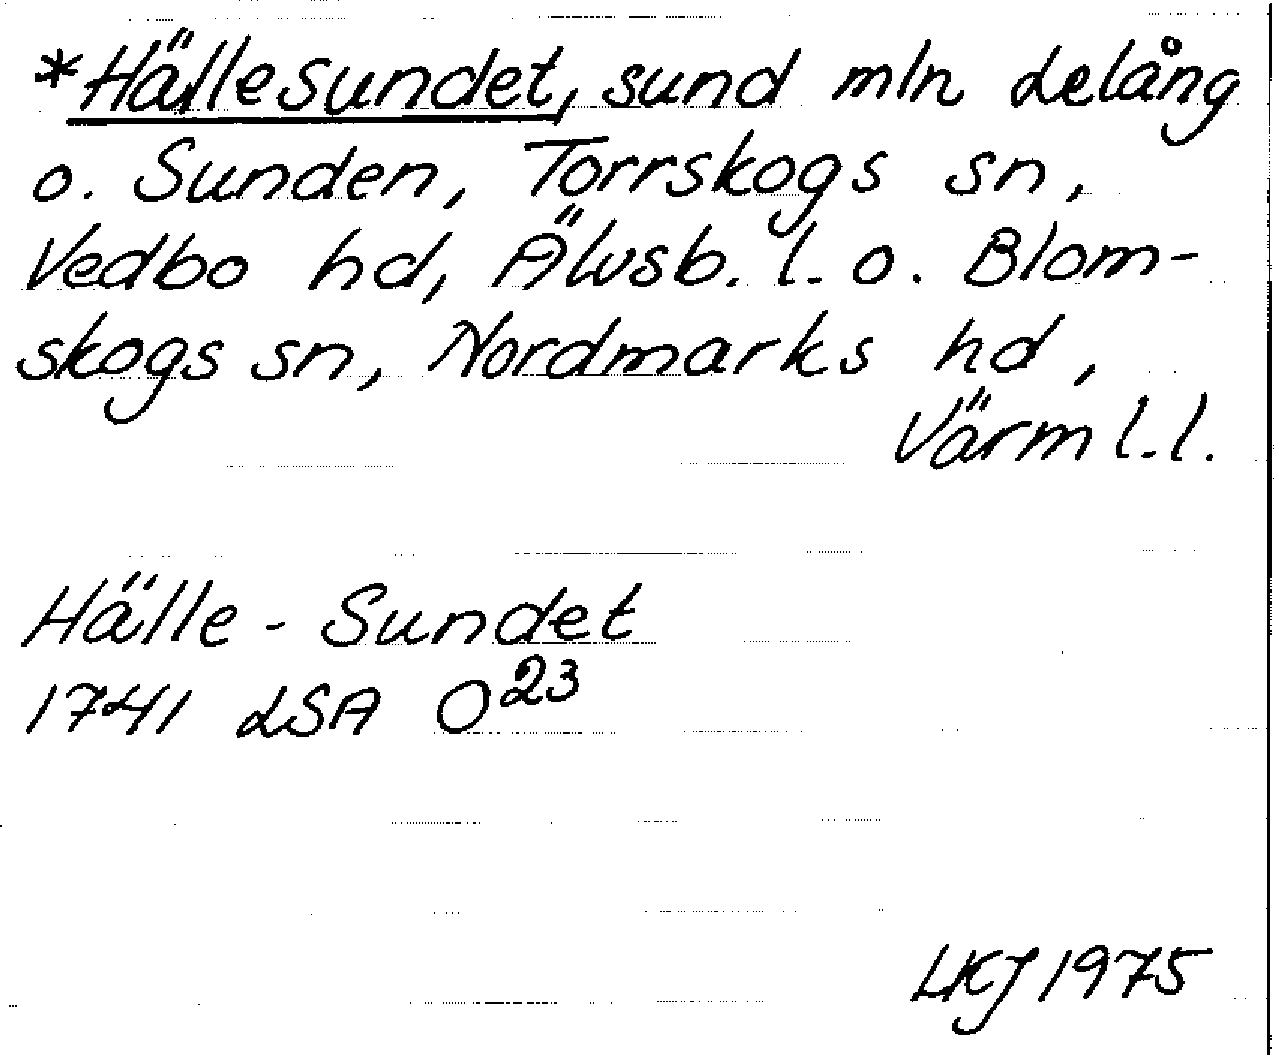 *Hällesundet, sund mln Lelång
o. Sunden, Torrskogs sn,
Vedbo hd, Älvsb. l. o. Blom-
skogs sn, Nordmarks hd,
Värml.l.
Hälle - Sundet
1741 LSA O²³
LKJ 1975